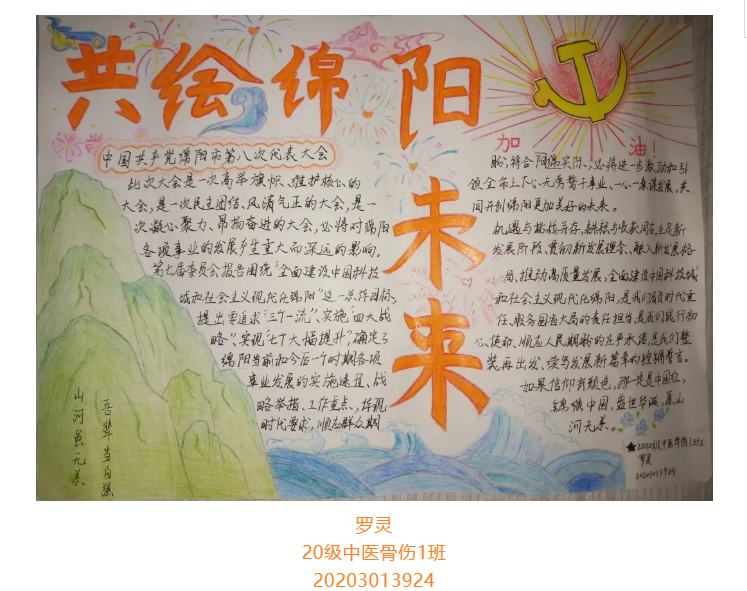 共绘绵阳
未来
加油!
中国共产党绵阳市第八次代表大会
此次大会是一次高举旗帜、维护核心的
大会,是一次民主团结、风清气正的大会,是一
次凝心聚力、昂扬奋进的大会,必将对绵阳
各项事业的发展产生重大而深远的影响。
第七届委员会报告围绕“全面建设中国科技
城和社会主义现代化绵阳”这一总作目标,
提出要追求“三个一流”、实施“四大战
略”、实现“七个大幅提升”,确定了
绵阳当前和今后一个时期各项
事业发展的实施途径、战
略举措、工作重点,体现
时代要求,顺应群众期
盼,符合绵实际,必将进一步激励和引
领全市上下心无旁骛干事业、一心一意谋发展,共
同开创绵阳更加美好的未来。
机遇与挑战并存,耕耘与收获同在,立足新
发展阶段、贯彻新发展理念、融入新发展格
局、推动高质量发展,全面建设中国科技城
和社会主义现代化绵阳,是我们肩负时代重
任、服务国省大局的责任担当,是我们践行初
心使命、顺应人民期盼的庄严承诺,是我们整
装再出发、续写发展新篇章的铿锵誓言。
如果信仰有颜色,那一定是中国红,
锦绣中国,盛世华诞,愿山
河无恙。
山河虽无恙
吾辈当自强
★2020级中医骨伤1班
罗灵
20203013924
罗灵
20级中医骨伤1班
20203013924